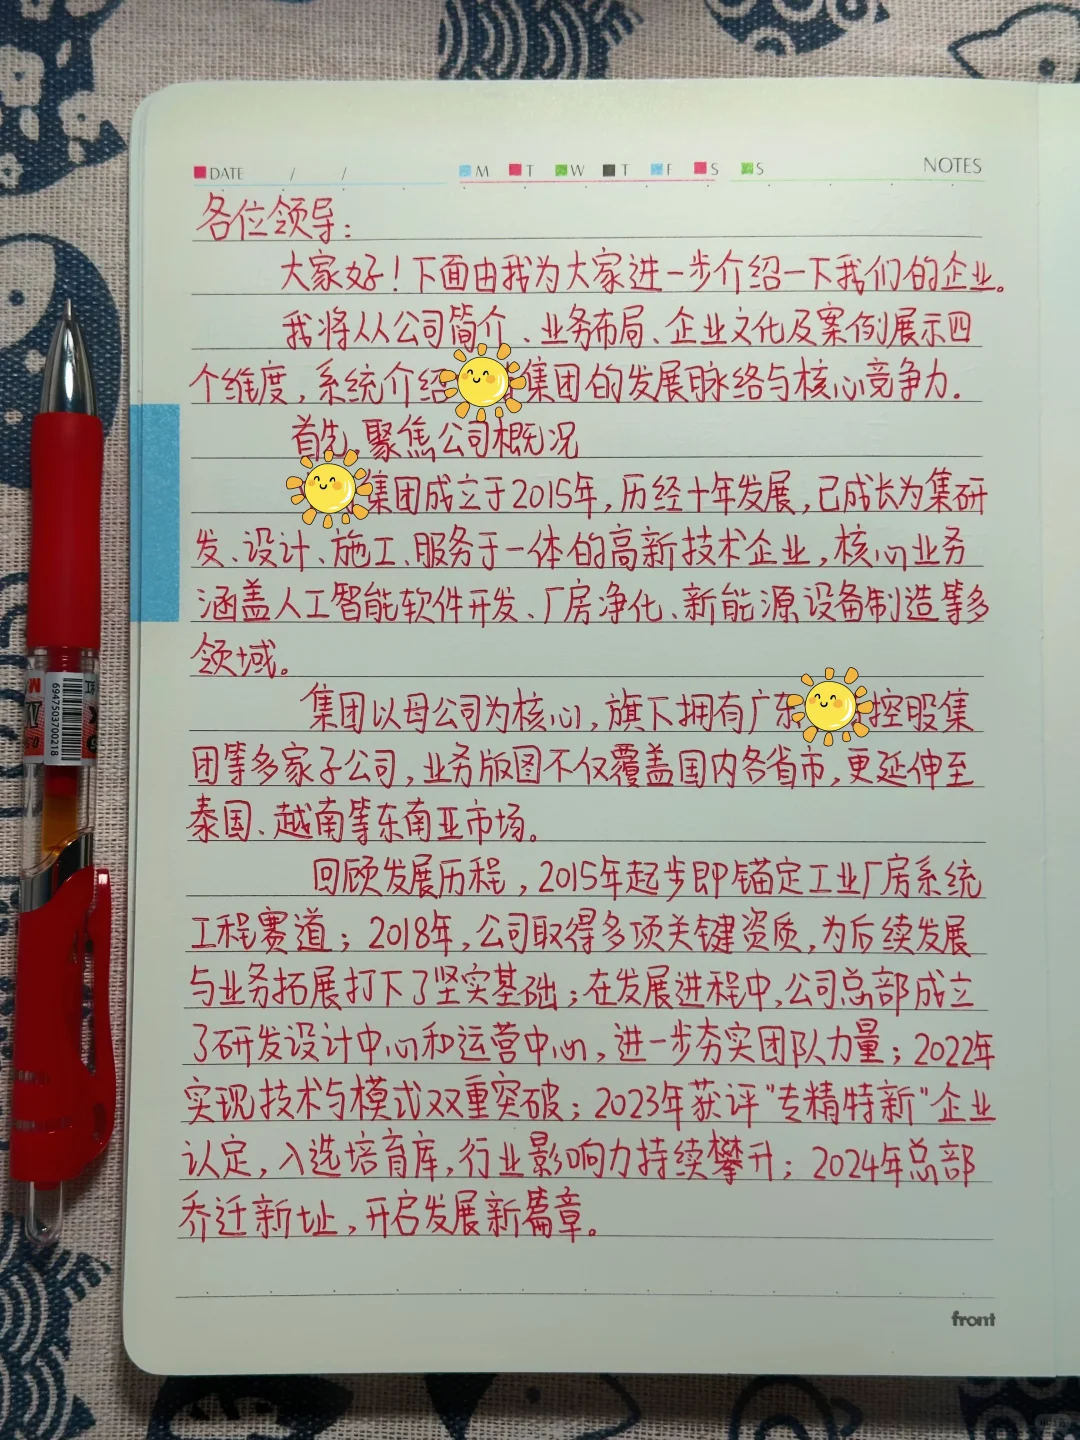 DATE / / M T W T F S S NOTES
各位领导:
大家好!下面由我为大家进一步介绍一下我们的企业。
我将从公司简介、业务布局、企业文化及案例展示四
个维度,系统介绍集团的发展脉络与核心竞争力.
首先,聚焦公司概况
集团成立于2015年,历经十年发展,已成长为集研
发、设计、施工、服务于一体的高新技术企业,核心业务
涵盖人工智能软件开发、厂房净化、新能源设备制造等多
领域。
集团以母公司为核心,旗下拥有广东控股集
团等多家子公司,业务版图不仅覆盖国内各省市,更延伸至
泰国、越南等东南亚市场。
回顾发展历程,2015年起步即锚定工业厂房系统
工程赛道;2018年,公司取得多项关键资质,为后续发展
与业务拓展打下了坚实基础;在发展进程中,公司总部成立
了研发设计中心和运营中心,进一步夯实团队力量;2022年
实现技术与模式双重突破;2023年获评"专精特新"企业
认定,入选培育库,行业影响力持续攀升;2024年总部
乔迁新址,开启发展新篇章。
front
6947503700219